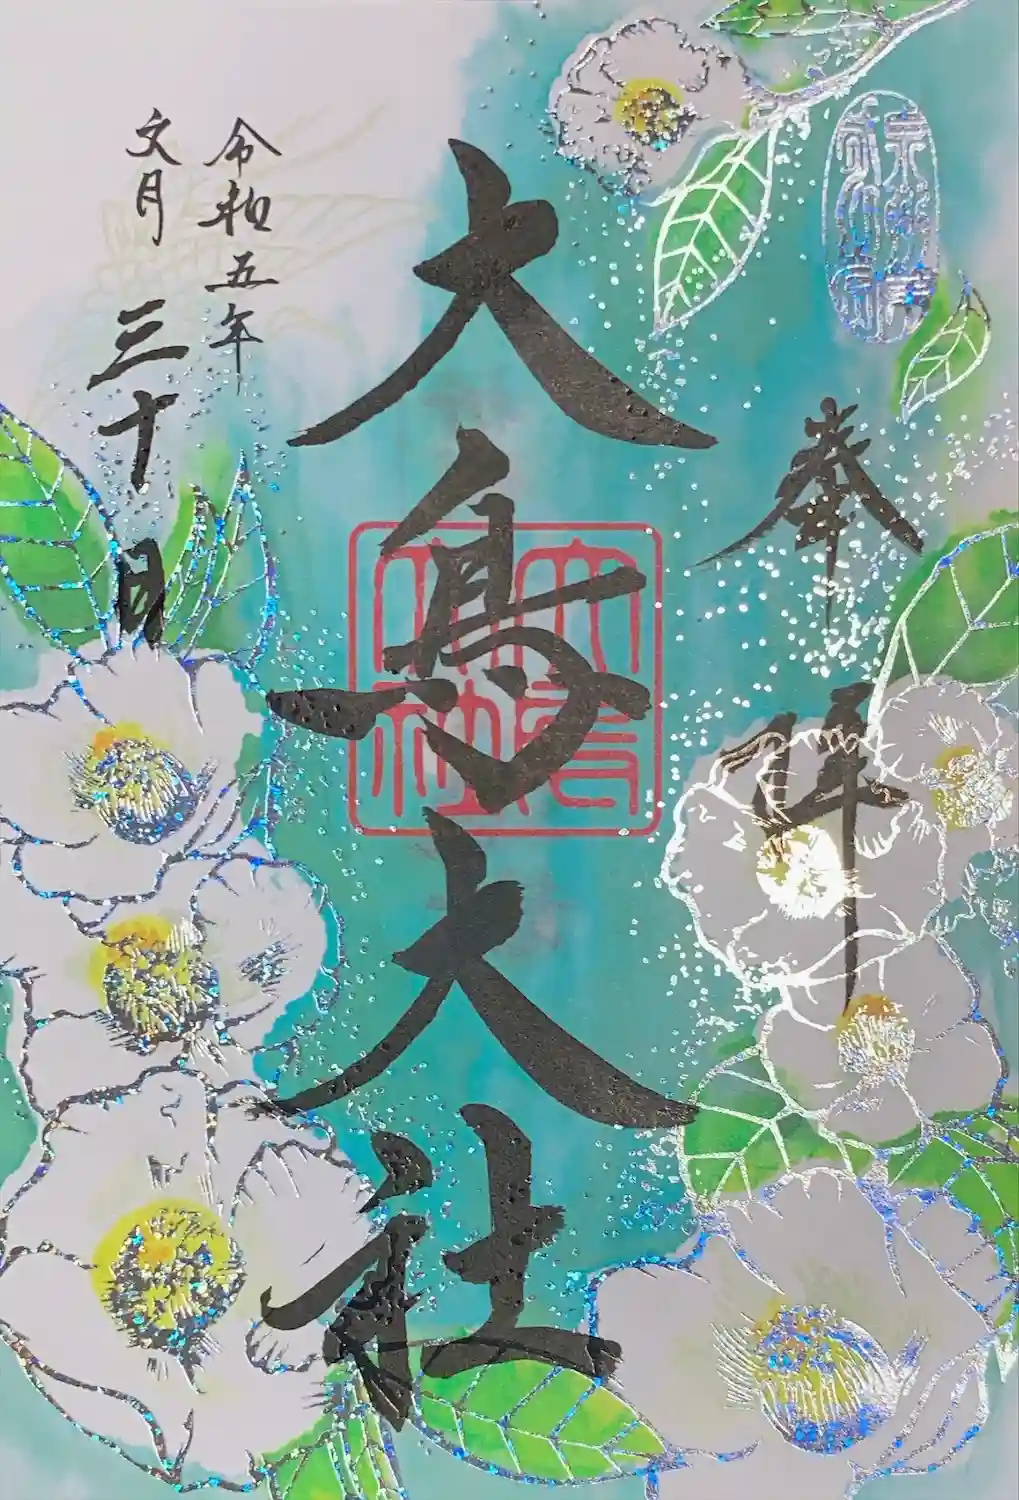 奉拝
大鳥大社
大鳥大社
令和五年
文月三十日